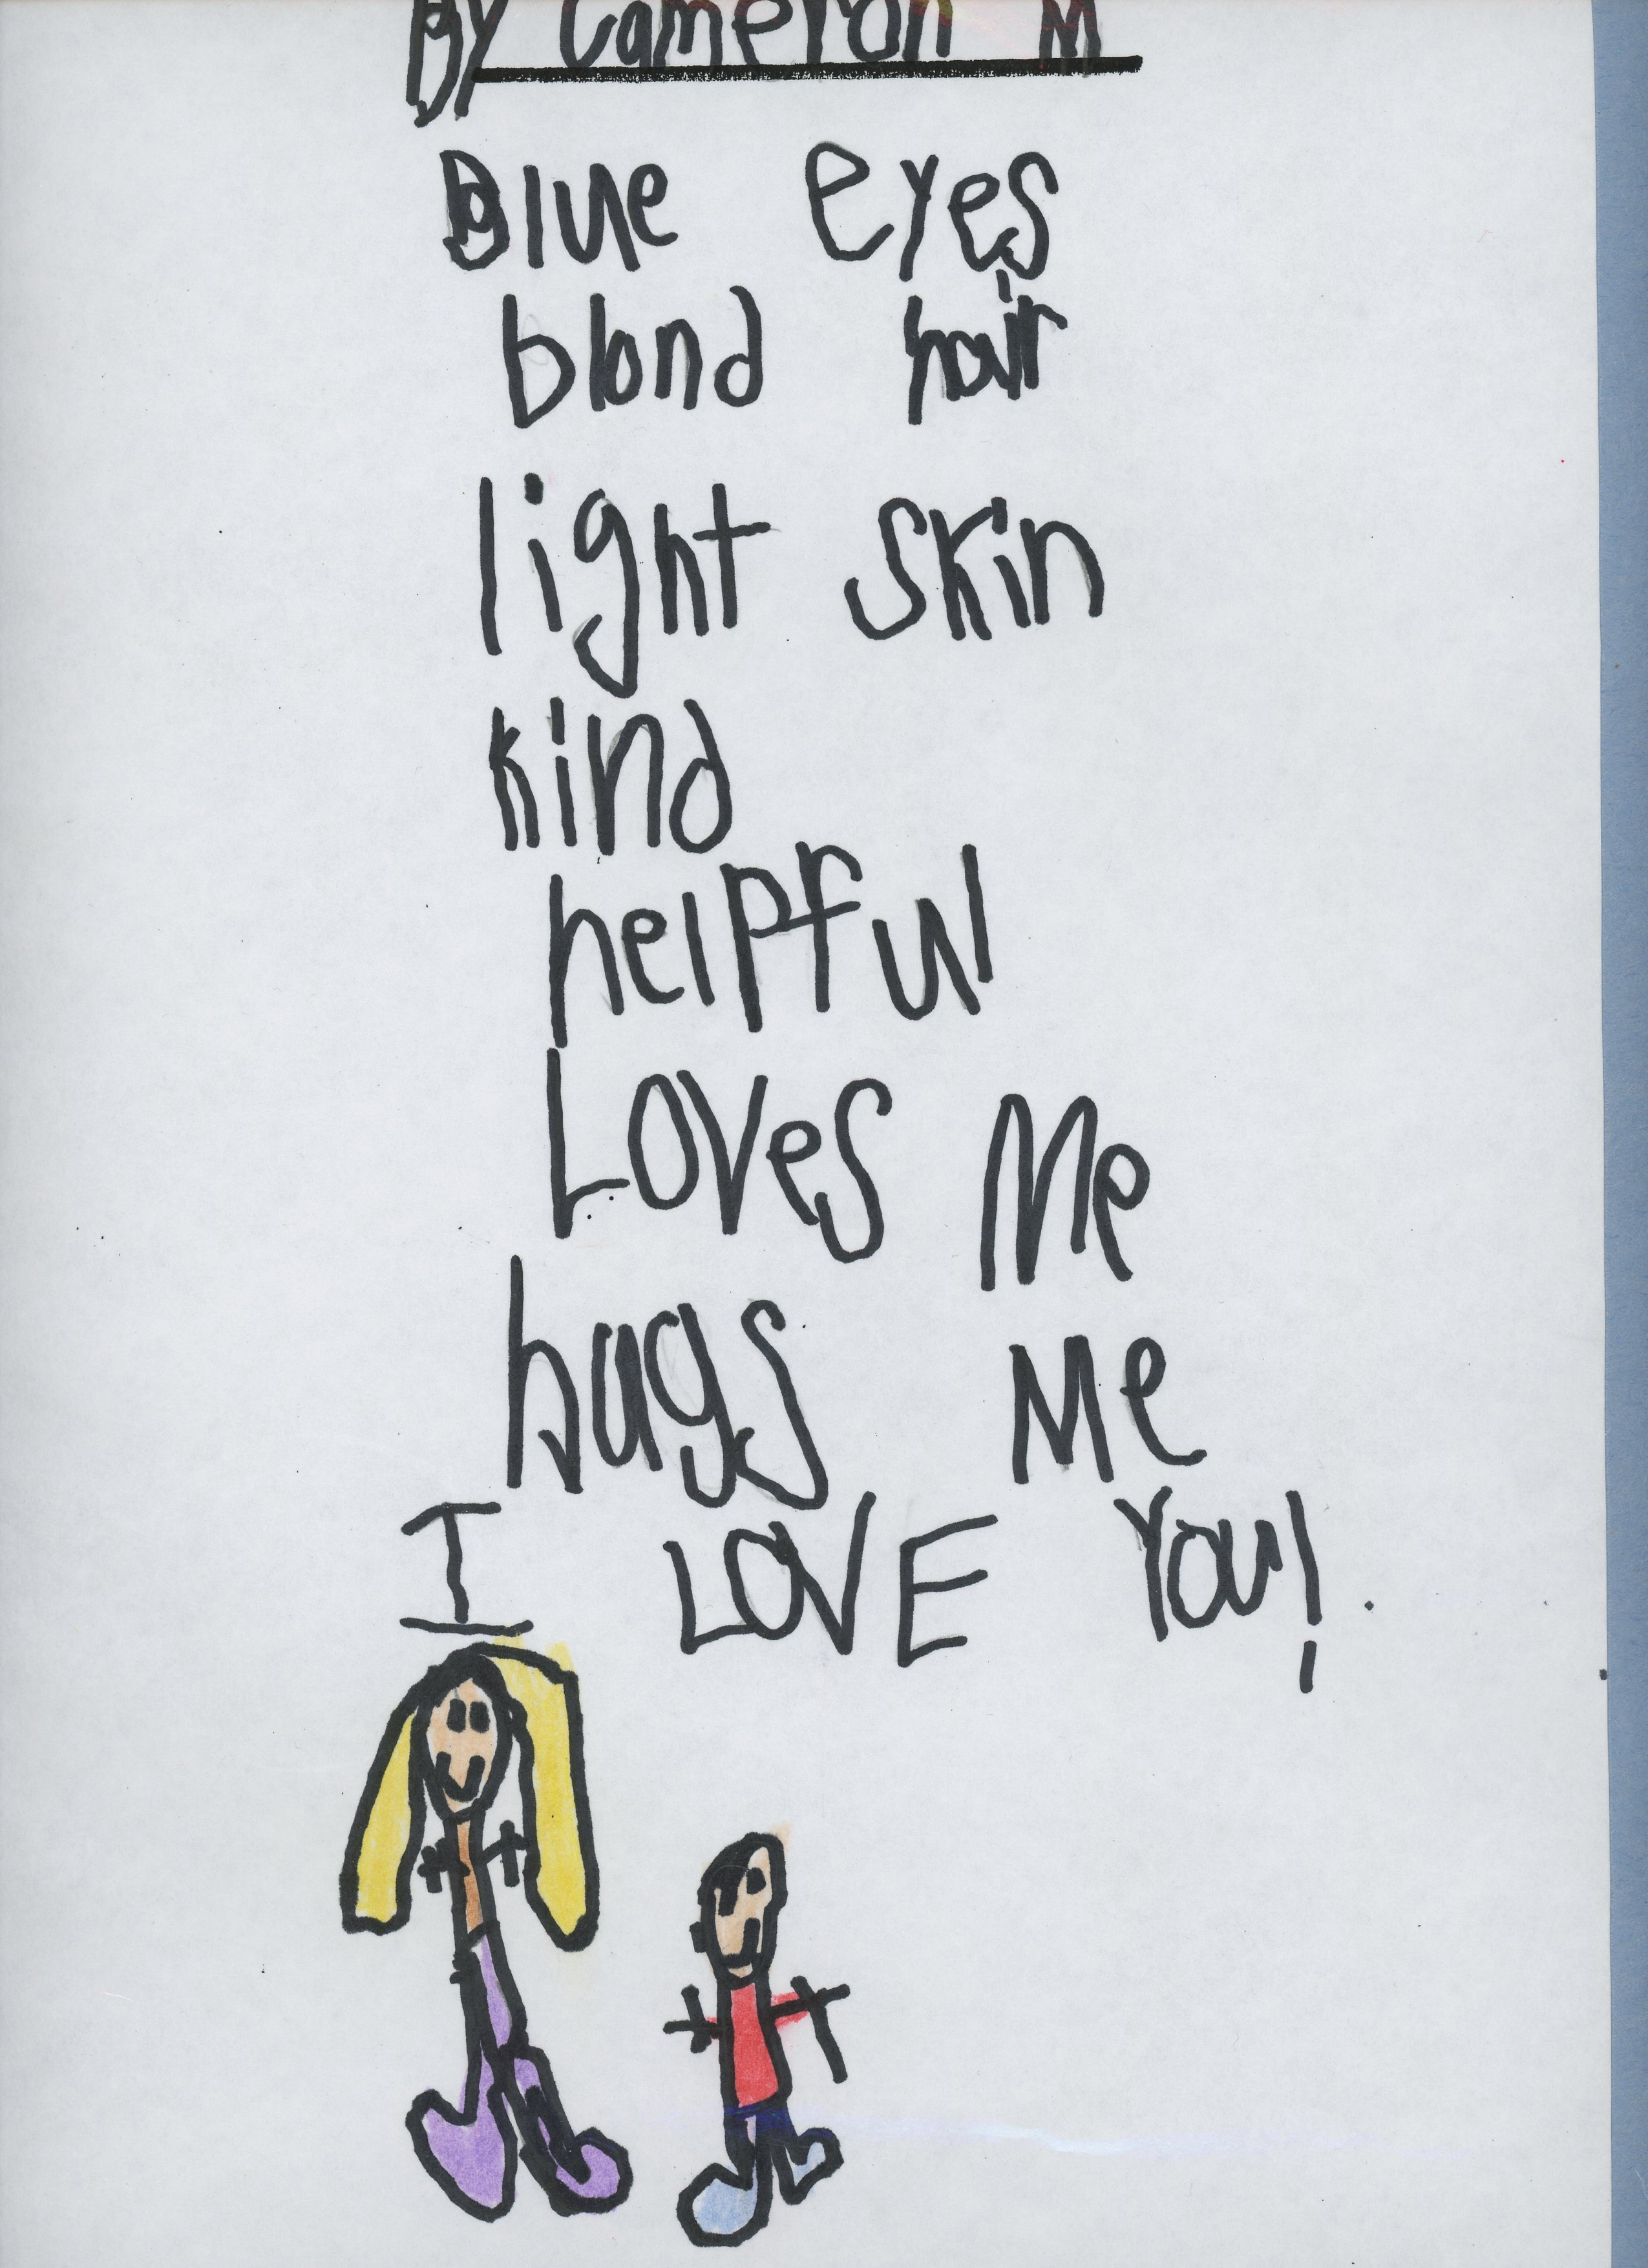 By Cameron M
Blue eyes
blond hair
light skin
kind
helpful
Loves Me
hugs Me
I LOVE You!